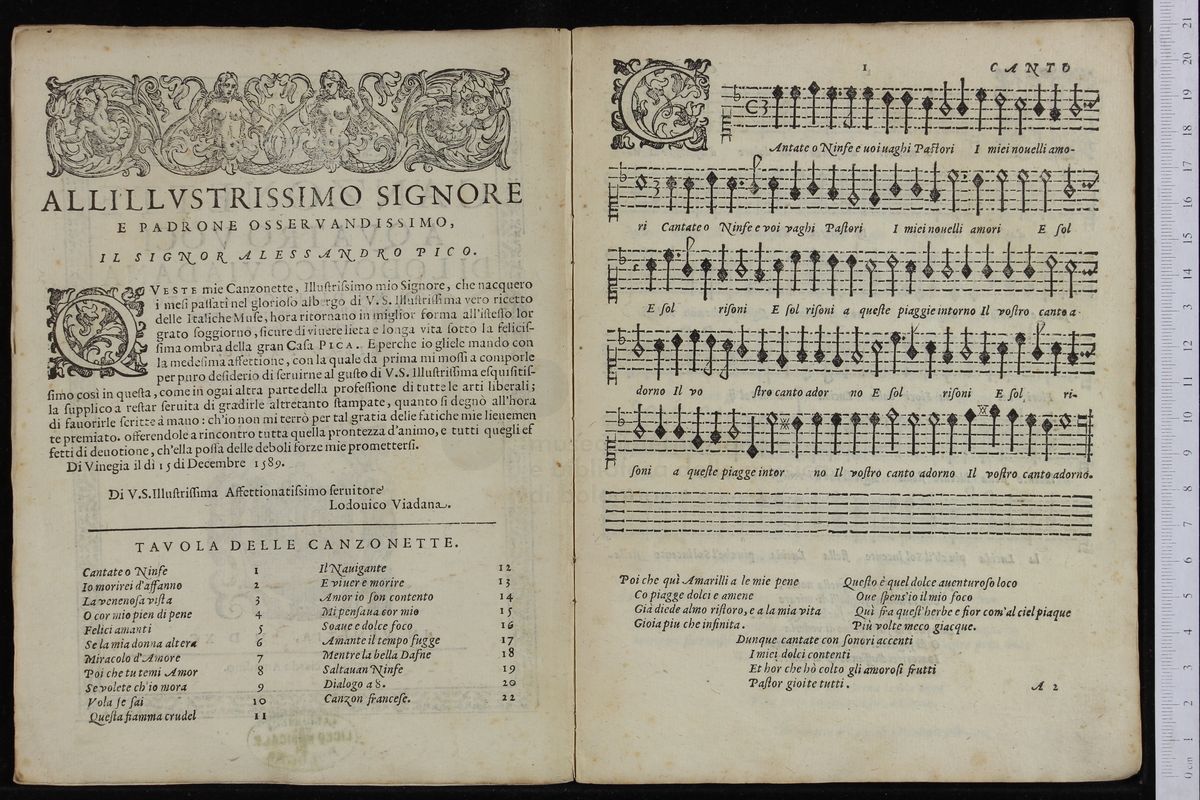 ALLILLVSTRISSIMO SIGNORE
E PADRONE OSSERVANDISSIMO,
IL SIGNOR ALESSANDRO PICO.
QVESTE mie Canzonette, Illuſtriſsimo mio Signore, che nacquero
i meſi paſſati nel glorioſo albergo di V. S. Illuſtriſſima vero ricetto
delle Italiche Muſe, hora ritornano in miglior forma all'iſteſſo lor
grato ſoggiorno, ſicure di viuere lieta e longa vita ſotto la feliciſ-
ſima ombra della gran Caſa PICA. E perche io gliele mando con
la medeſima affettione, con la quale da prima mi moſſi a comporle
per puro deſiderio di ſeruirne al guſto di V.S. Illuſtriſſima eſquiſitiſ-
ſimo cosi in queſta, come in ogni altra parte della profeſſione di tutte le arti liberali;
la ſupplico a reſtar ſeruita di gradirle altretanto ſtampate, quanto ſi degnò all'hora
di fauorirle ſcritte à mano: ch'io non mi terrò per tal gratia delle fatiche mie lieuemen
te premiato. offerendole a rincontro tutta quella prontezza d'animo, e tutti quegli ef
fetti di deuotione, ch'ella poſſa delle deboli forze mie prometterſi.
Di Vinegia il di 15 di Decembre 1589.
Di V.S.Illuſtriſſima Affettionatiſsimo ſeruitore
Lodouico Viadana.
TAVOLA DELLE CANZONETTE.
Cantate o Ninfe 1
Io morirei d'affanno 2
La venenoſa viſta 3
O cor mio pien di pene 4
Felici amanti 5
Se la mia donna altera 6
Miracolo d'Amore 7
Poi che tu temi Amor 8
Se volete ch'io mora 9
Vola ſe ſai 10
Queſta fiamma crudel 11
Il Nauigante 12
E viuer e morire 13
Amor io ſon contento 14
Mi penſaua cor mio 15
Soaue e dolce foco 16
Amante il tempo fugge 17
Mentre la bella Dafne 18
Saltauan Ninfe 19
Dialogo a 8. 20
Canzon franceſe. 22
1 CANTO
CAntate o Ninfe e uoi uaghi Paſtori I miei nouelli amo-
ri Cantate o Ninfe e voi vaghi Paſtori I miei nouelli amori E ſol
E ſol riſoni E ſol riſoni a queſte piaggie intorno Il voſtro canto a-
dorno Il vo ſtro canto ador no E ſol riſoni E ſol ri-
ſoni a queſte piagge intor no Il voſtro canto adorno Il voſtro canto adorno.
Poi che quì Amarilli a le mie pene
Co piagge dolci e amene
Già diede almo riſtoro, e a la mia vita
Gioia piu che infinita.
Queſto è quel dolce auenturoſo loco
Oue ſpens'io il mio foco
Quì fra queſt'herbe e fior com'al ciel piaque
Più volte meco giacque.
Dunque cantate con ſonori accenti
I miei dolci contenti
Et hor che hò colto gli amoroſi frutti
Paſtor gioite tutti.
A 2